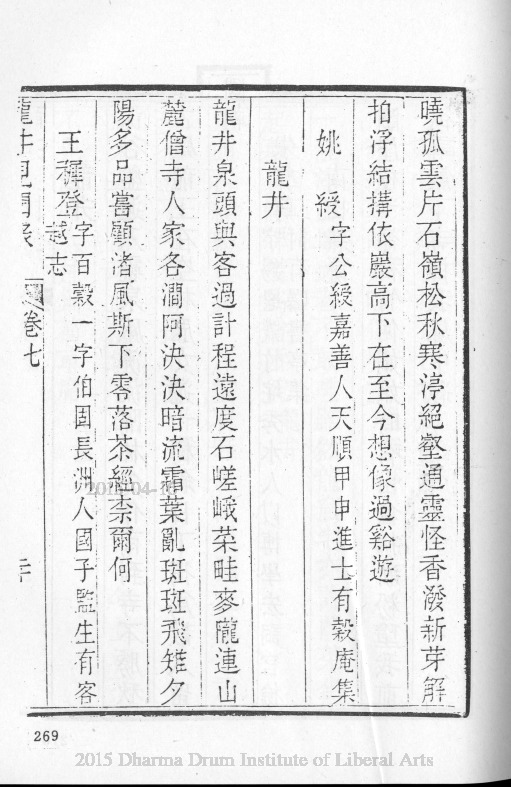 曉孤雲片石嶺松秋寒渟絕壑通靈怪香潑新芽解
拍浮結搆依巖高下在至今想像過谿遊
姚綬字公綬嘉善人天順甲申進士有穀庵集
龍井
龍井泉頭與客過計程遠度石嵯峨菜畦麥隴連山
麓僧寺人家各澗阿決決暗流霜葉亂斑斑飛雉夕
陽多品嘗顧渚風斯下零落茶經柰爾何
王穉登字百穀一字伯固長洲人國子監生有客
越志
龍井見聞錄
卷七
269
2015 Dharma Drum Institute of Liberal Arts